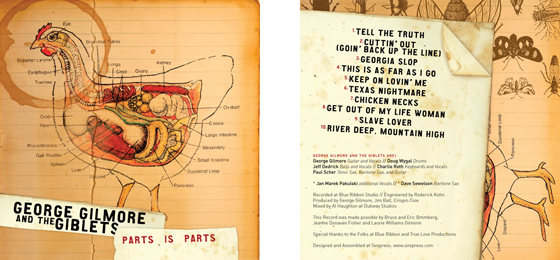 Eye
Bronchial Tubes
Superior Larynx
Lungs
Ovary
Kidney
Esophagus
Trachea
Oviduct
Crop
Heart
Liver
Cloaca
Large Intestine
Proventriculus
Gizzard
Mesentery
Gall Bladder
Small Intestine
Spleen
Duodenal Loop
Pancreas
GEORGE GILMORE
AND THE GIBLETS
PARTS IS PARTS
1. TELL THE TRUTH
2. CUTTIN' OUT
(GOIN' BACK UP THE LINE)
3. GEORGIA SLOP
4. THIS IS AS FAR AS I GO
5. KEEP ON LOVIN' ME
6. TEXAS NIGHTMARE
7. CHICKEN NECKS
8. GET OUT OF MY LIFE WOMAN
9. SLAVE LOVER
10. RIVER DEEP, MOUNTAIN HIGH
GEORGE GILMORE AND THE GIBLETS ARE:
George Gilmore Guitar and Vocals // Doug Wygal Drums
Jeff Dedrick Bass and Vocals // Charlie Roth Keyboards and Vocals
Paul Scher Tenor Sax, Baritone Sax, and Guitar
* Jan Marek Pakulski additional Vocals // ** Dave Sewelson Baritone Sax
Recorded at Blue Ribbon Studio // Engineered by Roderick Kohn
Produced by George Gilmore, Jim Ball, Crispin Cioe
Mixed by Al Houghton at Dubway Studios
This Record was made possible by Bruce and Eric Brimberg,
Jeanne Donavan Fisher and Laurie Williams Gilmore
Special thanks to the Folks at Blue Ribbon and True Love Productions
Designed and Assembled at Sirepress. www.sirepress.com
Duodenal Loop
Pancreas
Liver